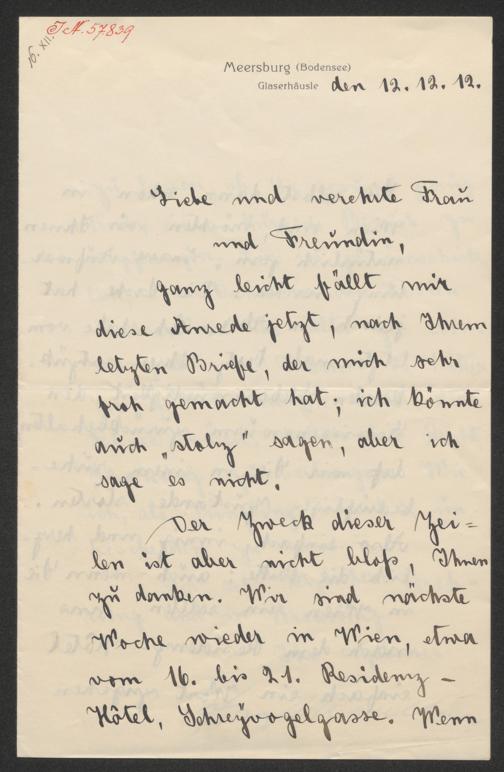 16. XII.
I.N. 57839
Meersburg (Bodensee)
Glaserhäusle den 12. 12. 12.
Liebe und verehrte Frau
und Freundin,
ganz leicht fällt mir
diese Anrede jetzt, nach Ihrem
letzten Briefe, der mich sehr
froh gemacht hat; ich könnte
auch „stolz" sagen, aber ich
sage es nicht.
Der Zweck dieser Zei=
len ist aber nicht bloß, Ihnen
zu danken. Wir sind nächste
Woche wieder in Wien, etwa
vom 16. bis 21. Residenz -
Hôtel, Schreyvogelgasse. Wenn